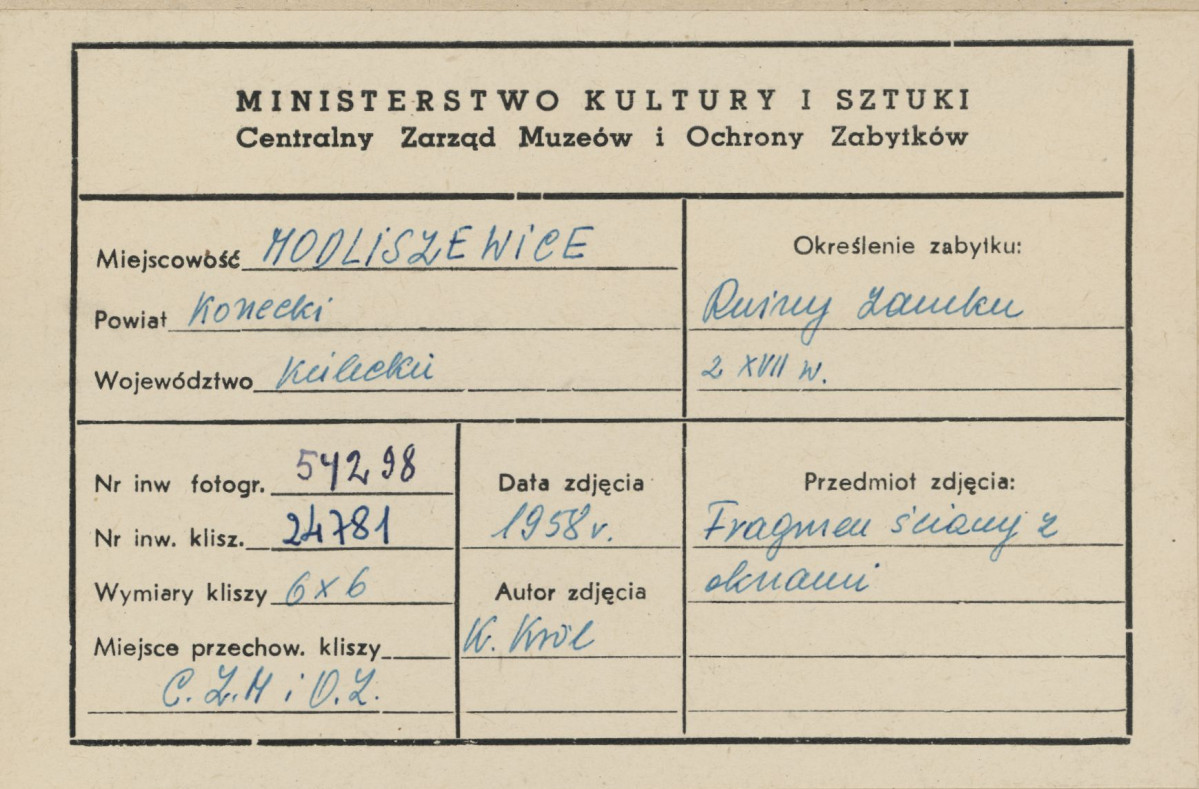 MINISTERSTWO KULTURY I SZTUKI
Centralny Zarząd Muzeów i Ochrony Zabytków
Miejscowość MODLISZEWICE
Powiat Konecki
Województwo Kielecki
Określenie zabytku:
Ruiny zamku
z XVII w.
Nr inw fotogr. 54298
Nr inw. klisz. 24781
Wymiary kliszy 6x6
Miejsce przechow. kliszy
C.Z.M i O.Z.
Data zdjęcia
1958 r.
Autor zdjęcia
K. Król
Przedmiot zdjęcia:
Fragmen ściany z
oknami